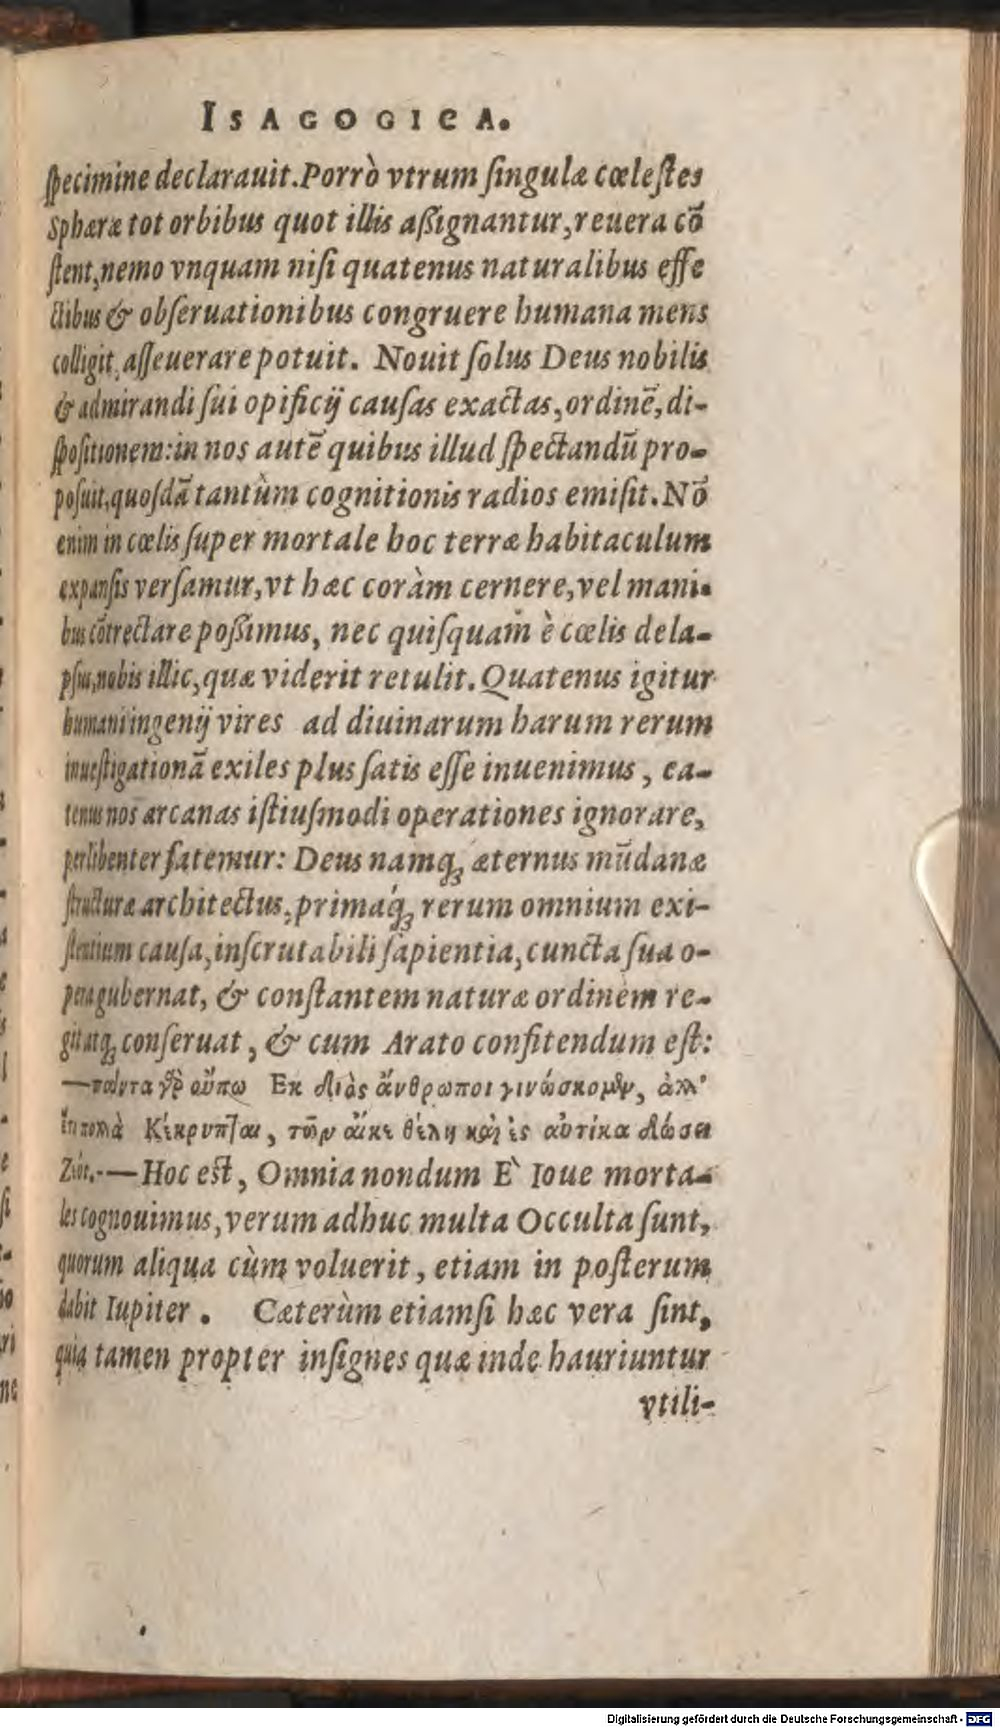 ISAGOGICA.
ſpecimine declarauit. Porrò vtrum ſingulæ cœleſtes
Sphæræ tot orbibus quot illis aßignantur, reuera cō
ſtent, nemo vnquam niſi quatenus naturalibus effe
ctibus & obſeruationibus congruere humana mens
colligit, aſſeuerare potuit. Nouit ſolus Deus nobilis
& admirandi ſui opificij cauſas exactas, ordinē, di-
ſpoſitionem: in nos autē quibus illud ſpectandū pro-
poſuit, quoſdā tantùm cognitionis radios emiſit. Nō
enim in cœlis ſuper mortale hoc terræ habitaculum
expanſis verſamur, vt hæc coràm cernere, vel mani-
bus cōtrectare poßimus, nec quiſquam è cœlis dela-
pſus, nobis illic, quæ viderit retulit. Quatenus igitur
humani ingenij vires ad diuinarum harum rerum
inueſtigationā exiles plus ſatis eſſe inuenimus, ea-
tenus nos arcanas iſtiuſmodi operationes ignorare,
perlibenter fatemur: Deus namq; æternus mūdanæ
ſtructuræ architectus, primaq́; rerum omnium exi-
ſtentium cauſa, inſcrutabili ſapientia, cuncta ſua o-
pera gubernat, & conſtantem naturæ ordinem re-
git atq; conſeruat, & cum Arato confitendum eſt:
—πάντα γὸ οὔπω Ἐκ Διὸς ἄνθρωποι γινώσκομεν, ἀλλ'
ἔτι πολλὰ Κέκρυπται, τῶν αἴκε θέλῃ καὶ ἐς αὐτίκα δώσει
Ζεὺς.-—Hoc eſt, Omnia nondum E` Ioue morta-
les cognouimus, verum adhuc multa Occulta ſunt,
quorum aliqua cùm voluerit, etiam in poſterum
dabit Iupiter. Cæterùm etiamſi hæc vera ſint,
quia tamen propter inſignes quæ inde hauriuntur
vtili-
Digitalisierung gefördert durch die Deutsche Forschungsgemeinschaft - DFG